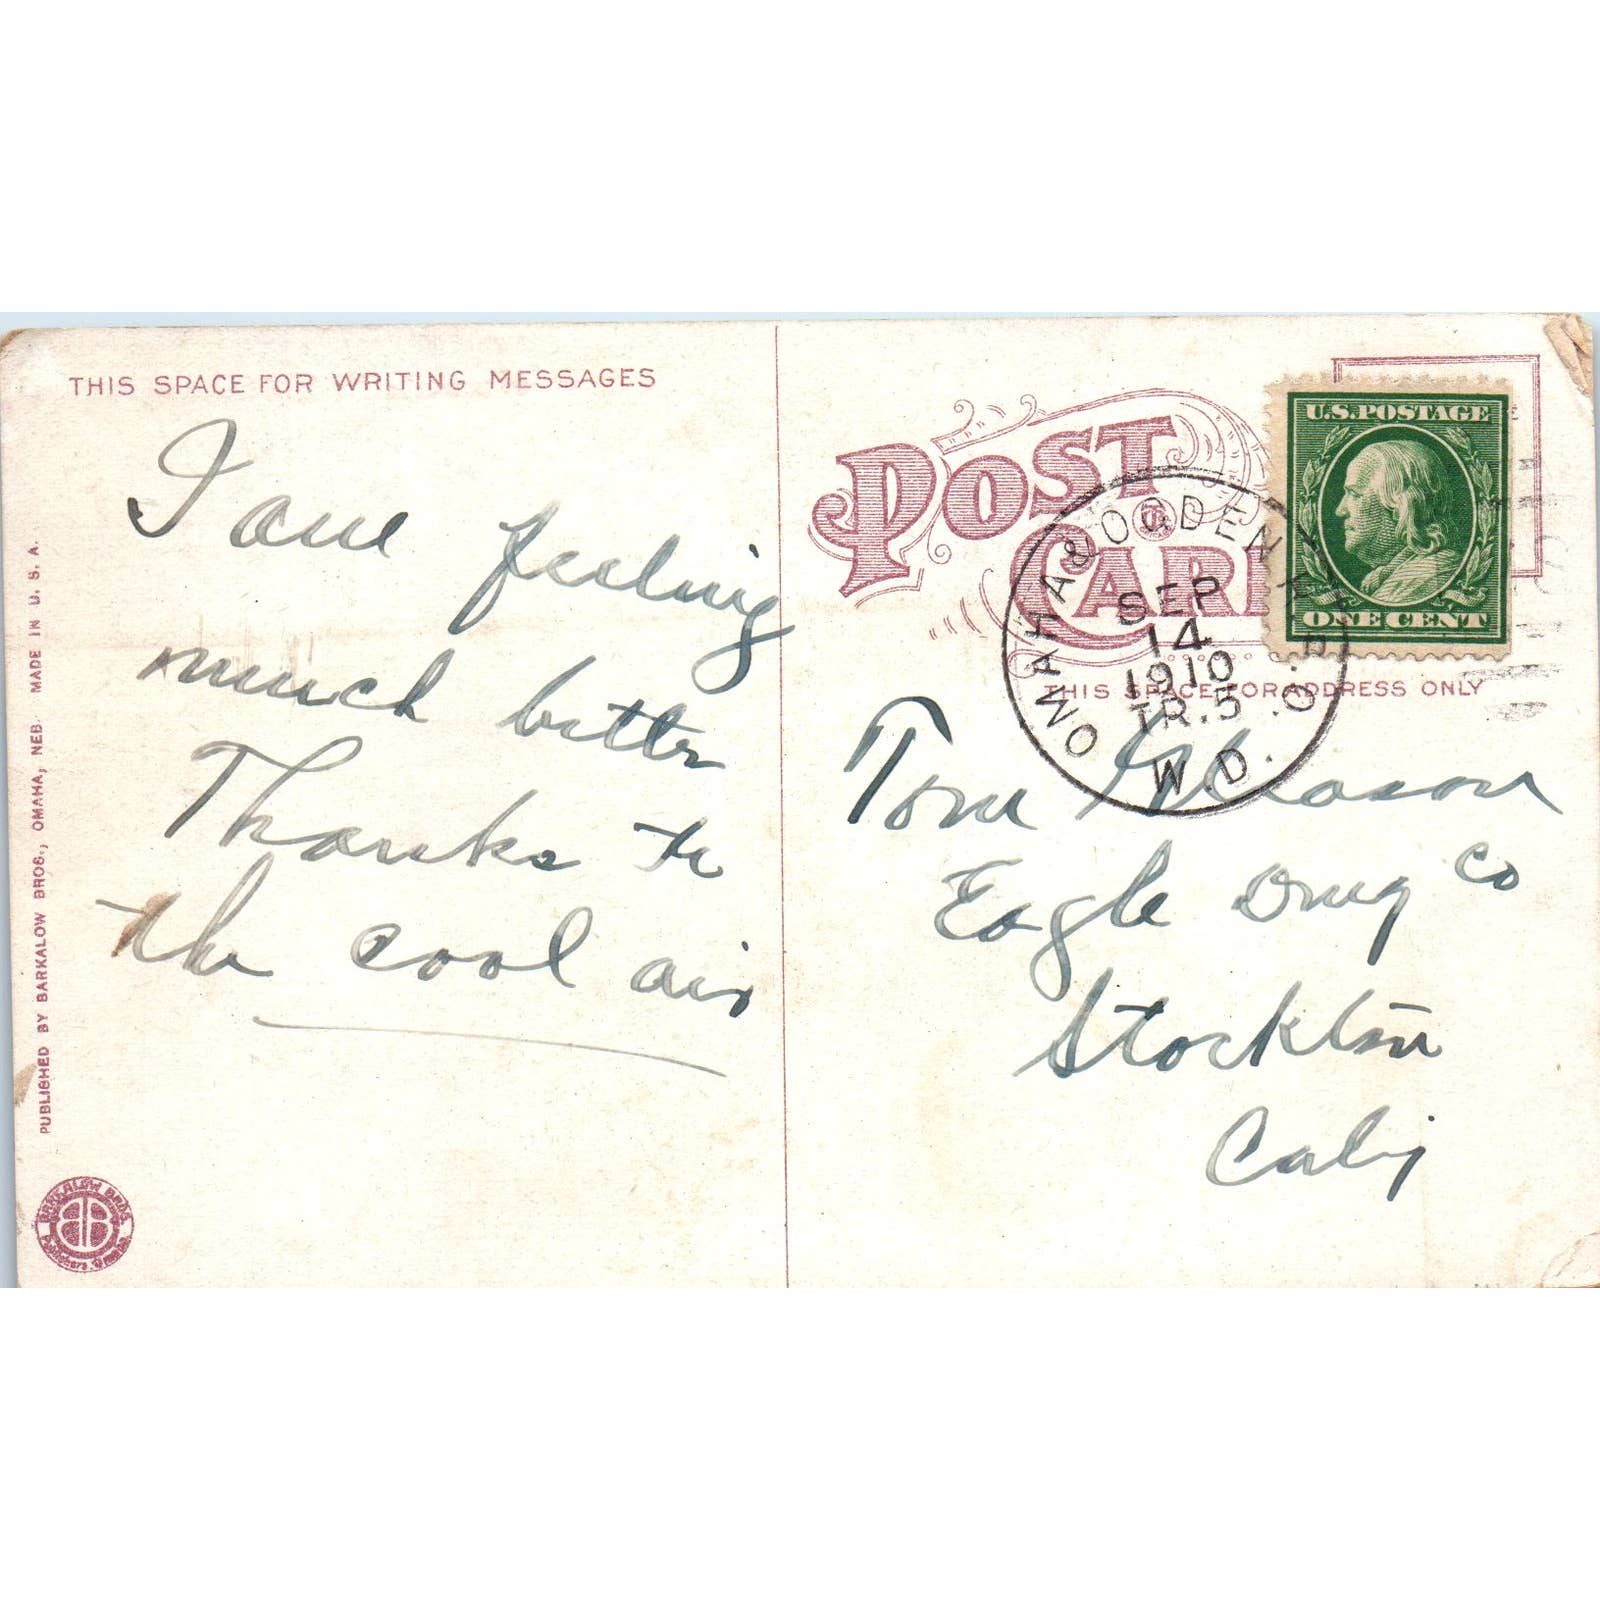 THIS SPACE FOR WRITING MESSAGES
I am feeling
much better
Thanks to
the cool air
PUBLISHED BY BARKALOW BROS., OMAHA, NEB. MADE IN U. S. A.
BARKALOW BROS.
Publishers Omaha
POST
CARD
U.S. POSTAGE
ONE CENT
OMAHA & OGDEN
SEP
14
1910
TR.5
W. D.
R.P.O.
THIS SPACE FOR ADDRESS ONLY
Tom
Eagle Drug Co
Stockton
Calif